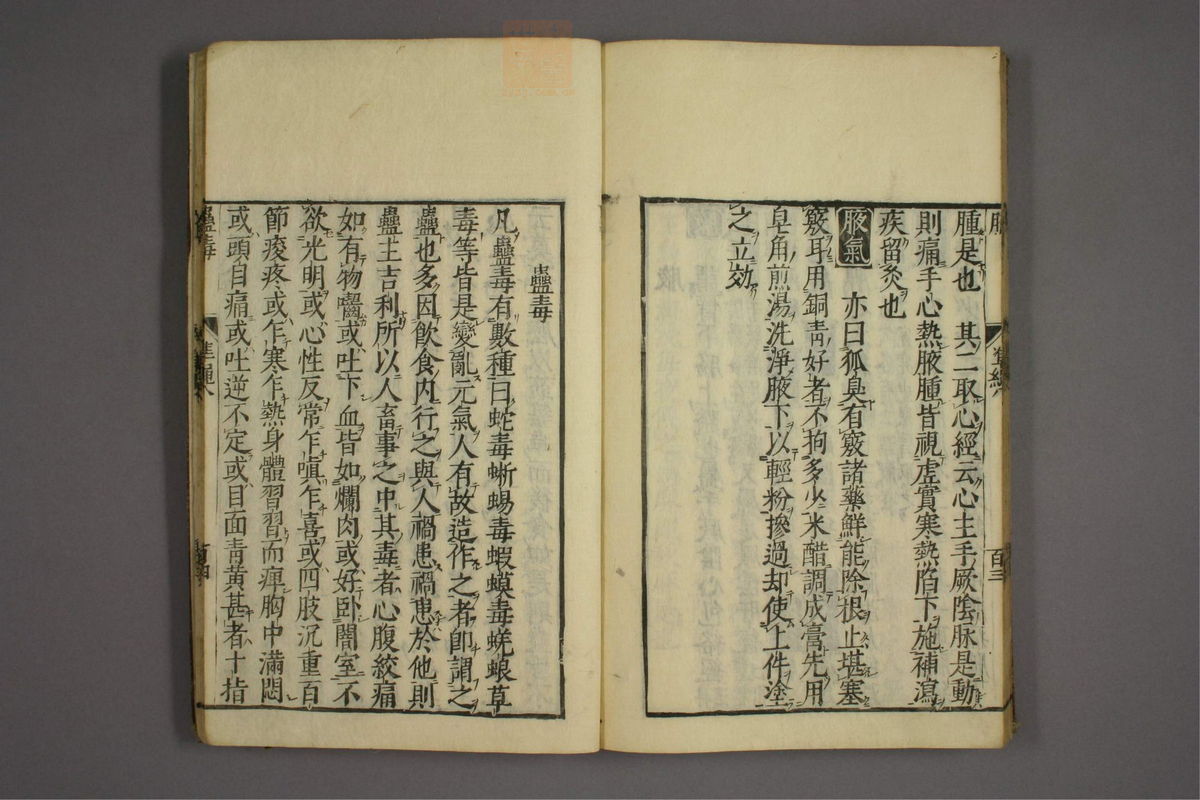 腫是也　其二取心經云心主手厥陰脉是動
則痛手心熱腋腫皆視虛實寒熱陷下施補瀉
疾留灸也
腋氣　亦曰狐臭有竅諸藥鮮能除根止堪塞
竅耳用銅靑好者不拘多少米醋調成膏先用
皂角煎湯洗淨腋下以輕粉摻過却使上件塗
之立効
百三
蠱毒
凡蠱毒有數種曰蛇毒蜥蜴毒蝦蟆毒蜣蜋草
毒等皆是變亂元氣人有故造作之者卽謂之
蠱也多因飮食内行之與人禍患禍患於他則
蠱主吉利所以人畜事之中其毒者心腹絞痛
如有物嚙或吐下血皆如爛肉或好卧闇室不
欲光明或心性反常乍嗔乍喜或四肢沉重百
節痠疼或乍寒乍熱身體習習而痺胸中滿悶
或頭目痛或吐逆不定或目面靑黃甚者十指
蠱毒
百四